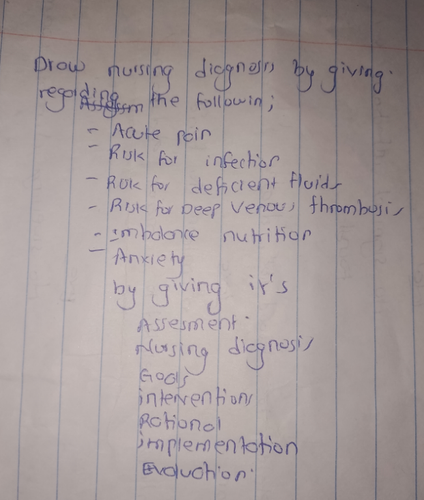 Draw nursing diagnosis by giving.
regarding the followin;
- Acute pain
- Risk for infection
- Risk for deficient fluids
- Risk for Deep venous thrombosis
- imbalance nutrition
- Anxiety
by giving it's
Assesment.
Nursing diagnosis
Goals
intervention
Rational
implementation
Evaluation.